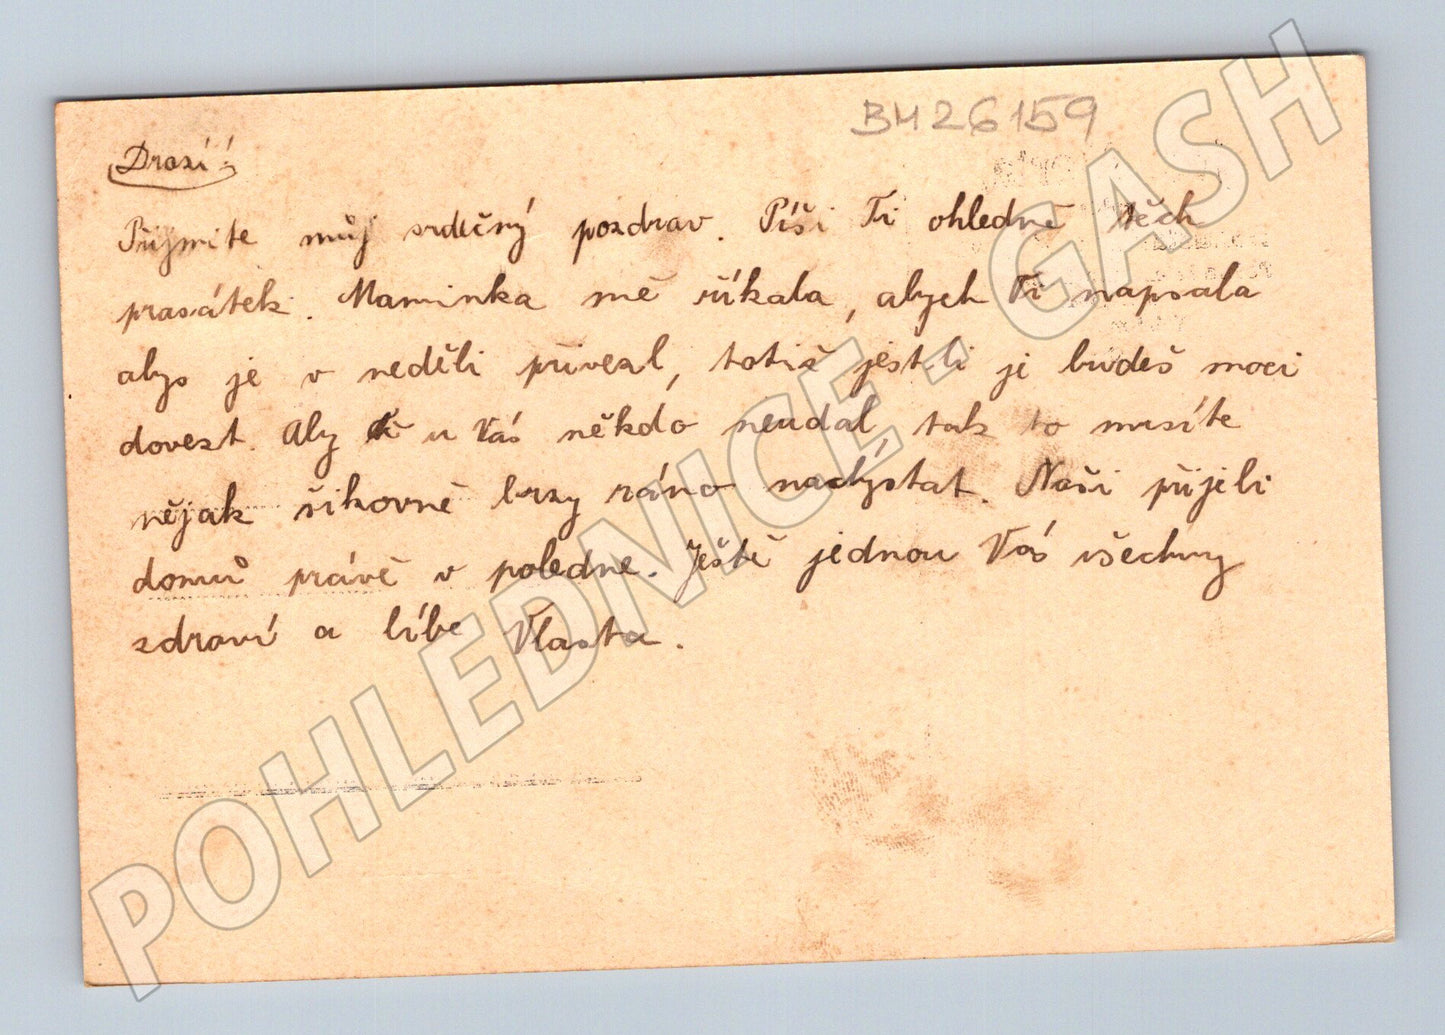 BM26159
Drazí!
Přijmite můj srdečný pozdrav. Píši Ti ohledně těch
prasátek. Maminka mě říkala, abych Ti napsala
abys je v neděli přivezl, totiž jestli je budeš moci
dovezt. Aby u Vás někdo neudal, tak to musíte
nějak šikovně brzy ráno nachystat. Naši přijeli
domů právě v poledne. Ještě jednou Vás všechny
zdraví a líbe Vlasta.
POHLEDNICE - GASH